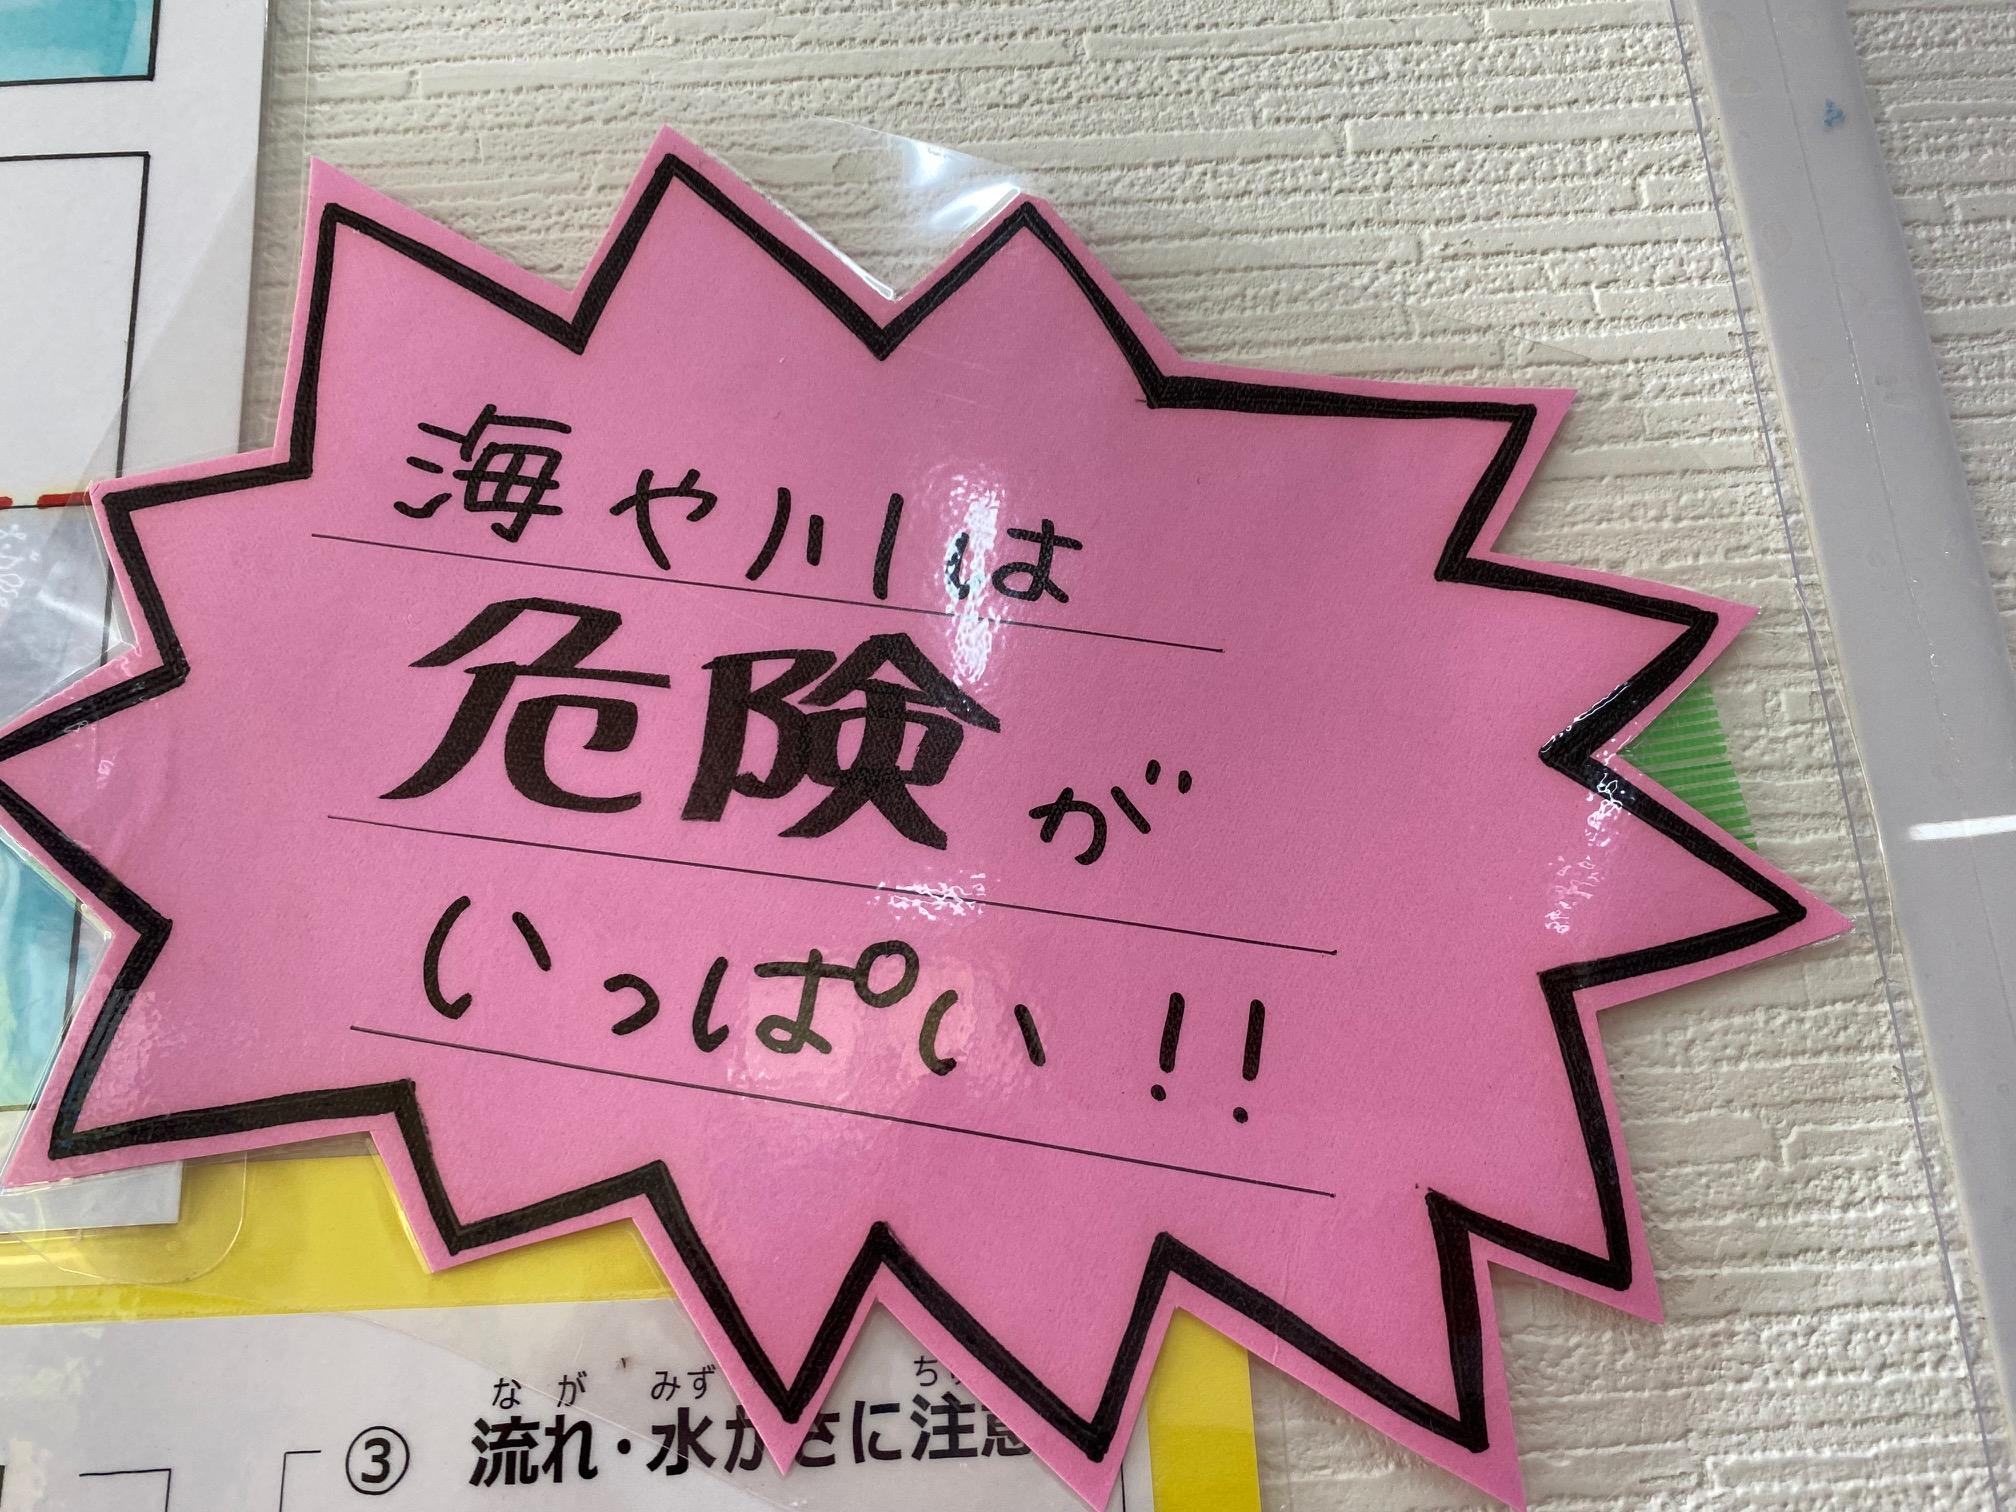 海や川は
危険が
いっぱい!!
な が みず
③ 流れ・水かさに注意